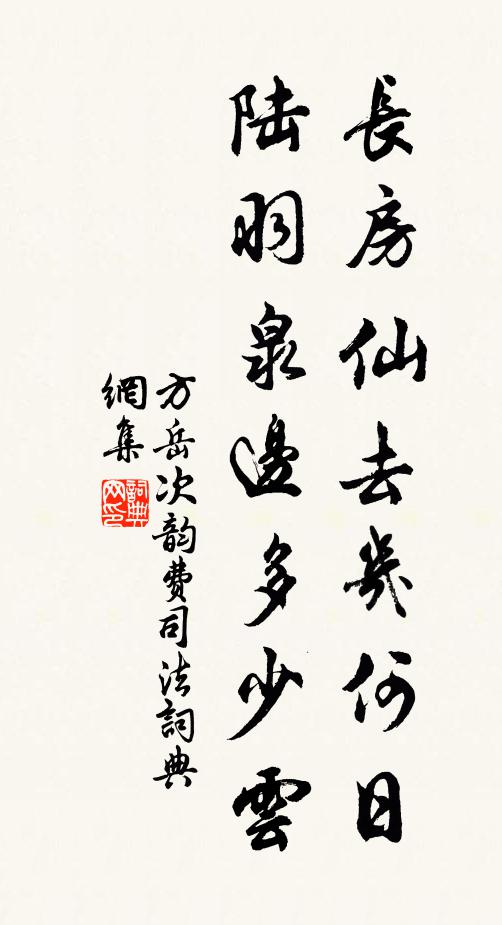 長房仙去幾何日
陸羽泉邊多少雲
方岳次韵費司法詞典
網集
詞典網印